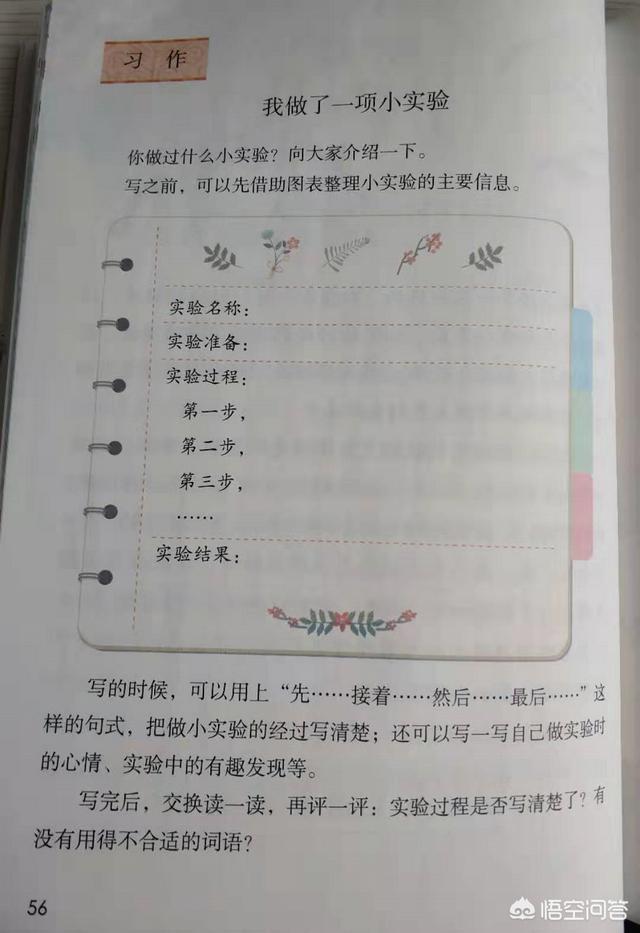 习 作
我做了一项小实验
你做过什么小实验？向大家介绍一下。
写之前，可以先借助图表整理小实验的主要信息。
实验名称：
实验准备：
实验过程：
第一步，
第二步，
第三步，
……
实验结果：
写的时候，可以用上“先……接着……然后……最后……”这
样的句式，把做小实验的经过写清楚；还可以写一写自己做实验时
的心情、实验中的有趣发现等。
写完后，交换读一读，再评一评：实验过程是否写清楚了？有
没有用得不合适的词语？
56
悟空问答